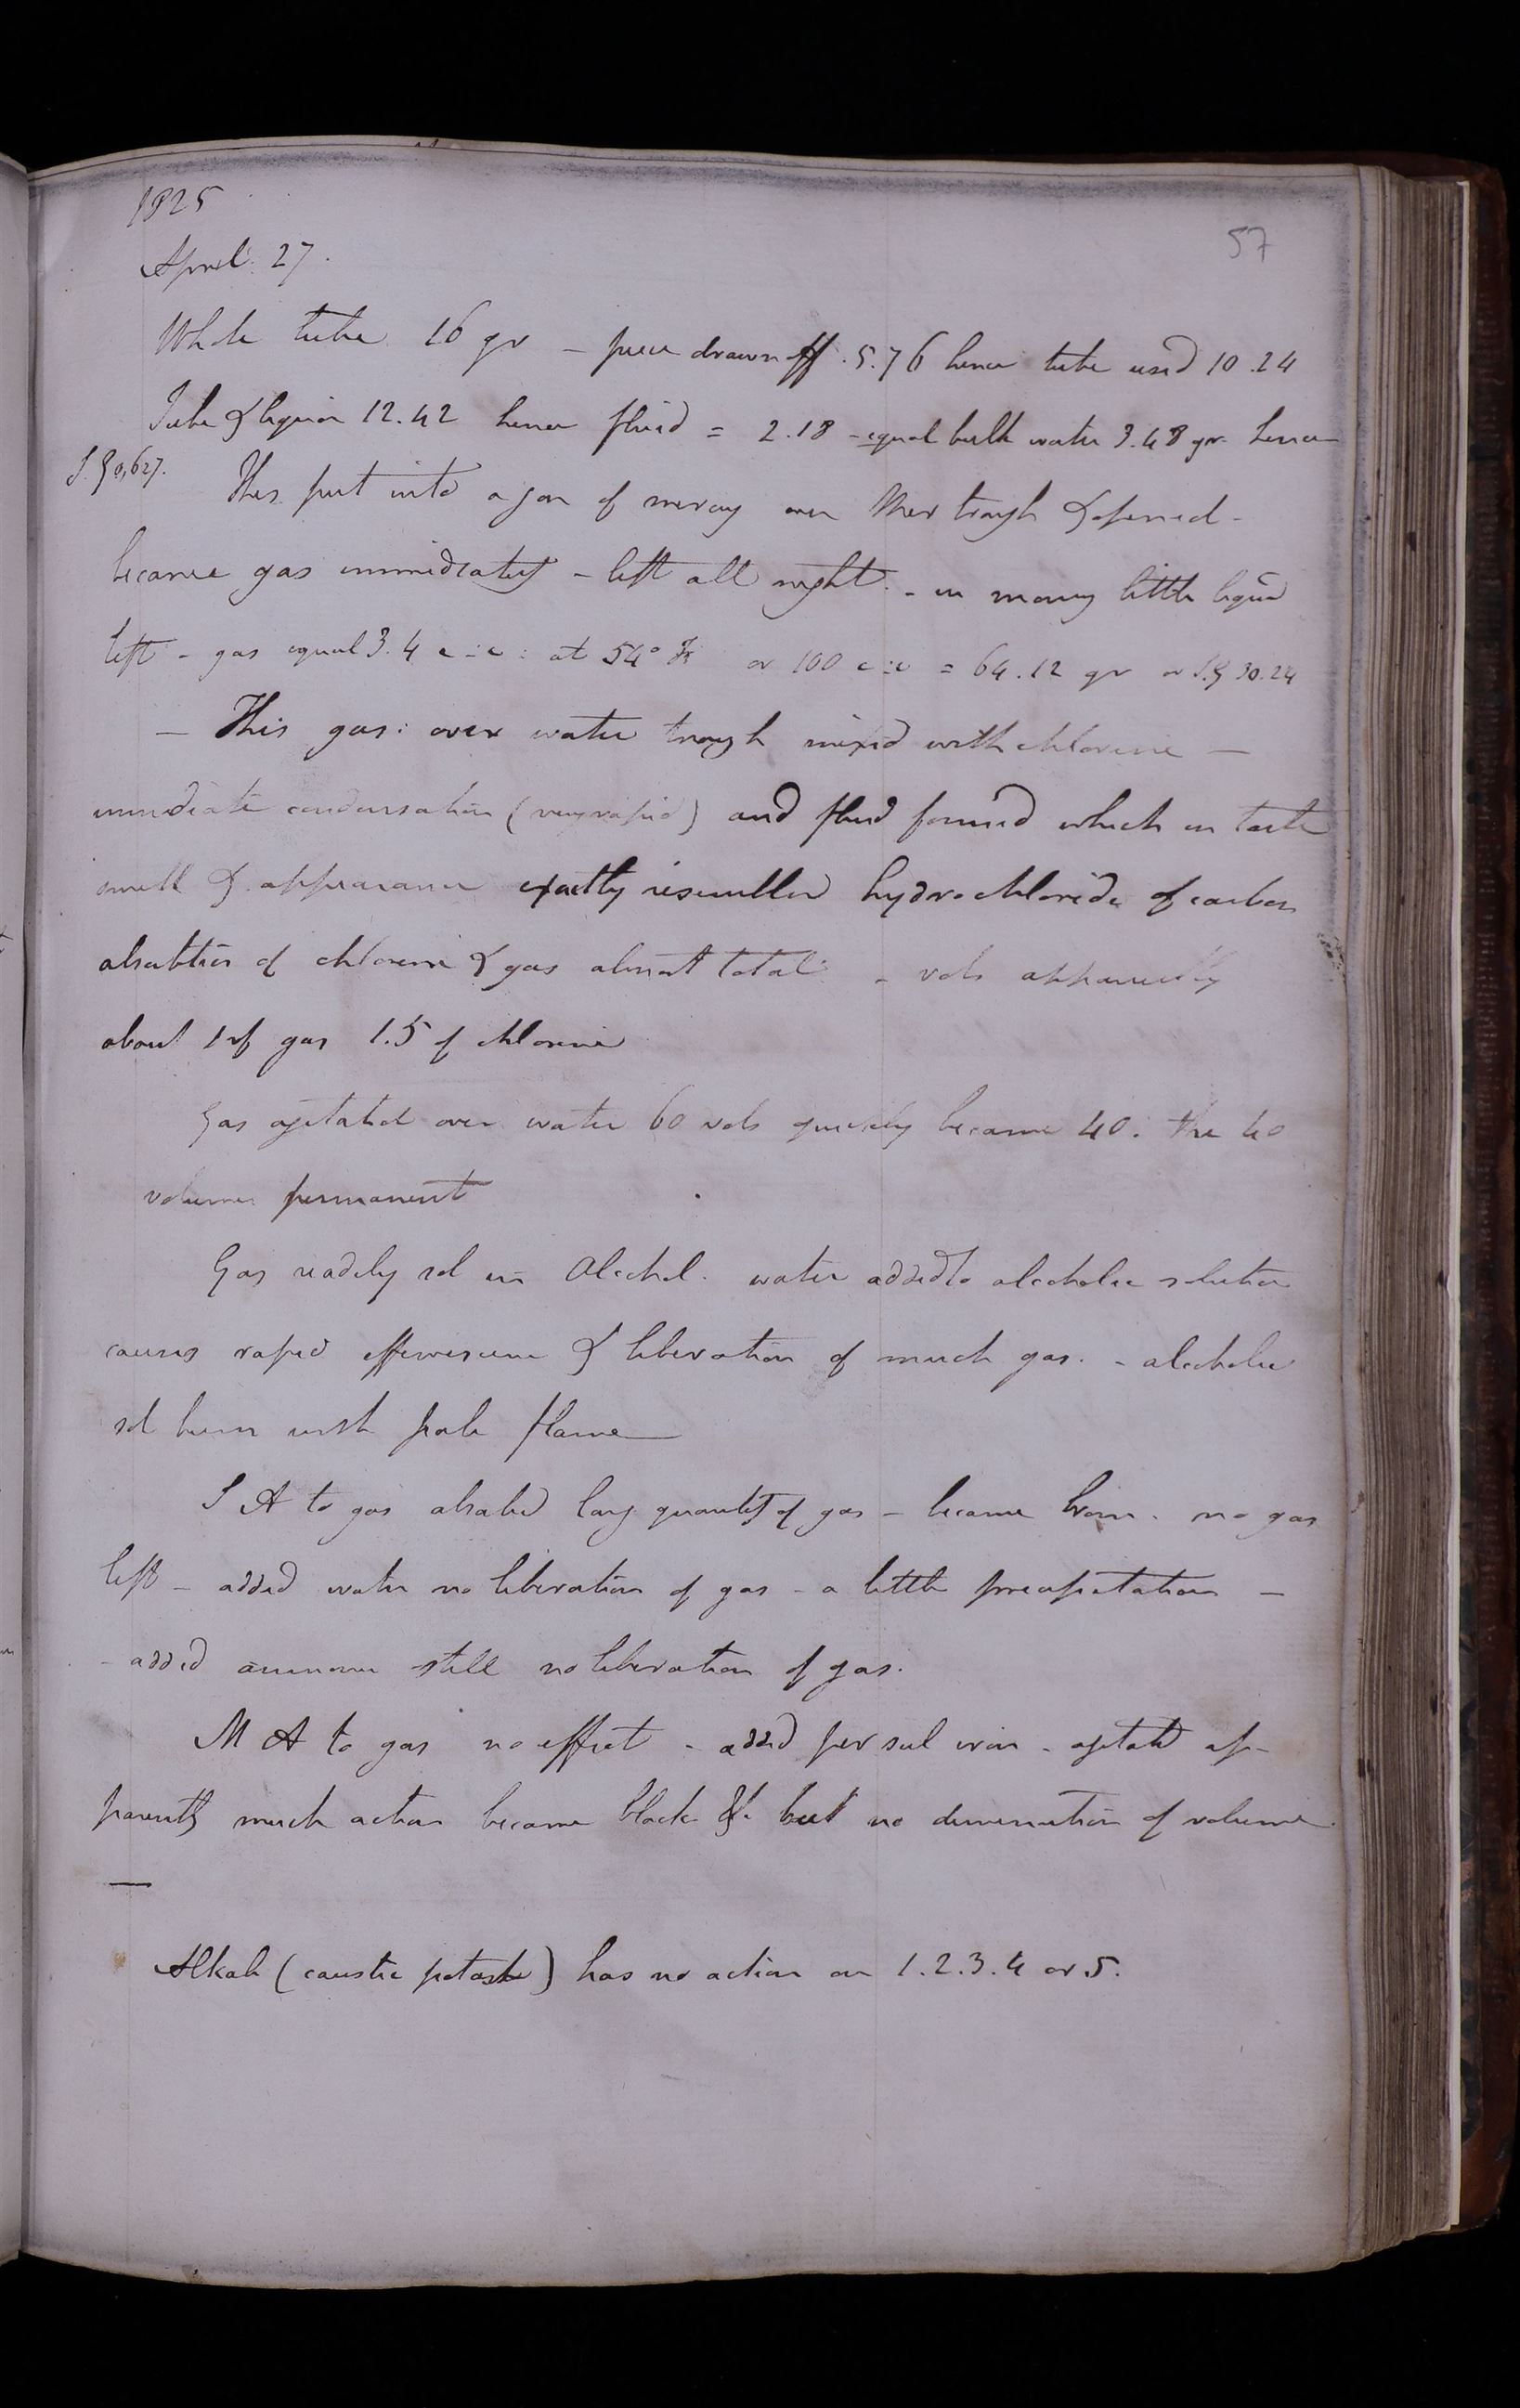 1825
57
April. 27.
Whole tube 16 gr - piece drawn off .5.76 hence tube used 10.24
Tube & liquor 12.42 hence fluid = 2.18 - equal bulk water 3.48 gr. hence
S.G 0,627. This put into a jar of mercury over Mer trough & opened -
became gas immediately - left all night. - in morng little liquid
left - gas equal 3.4 c:i: at 54° F or 100 c:i = 64.12 gr or S.G 30.24
- This gas: over water trough mixed with chlorine -
immediate condensation (very rapid) and fluid formed which in taste
smell & appearance exactly resembled hydrochloride of carbon
absorbtion of chlorine & gas almost total - vols apparently
about 1 of gas 1.5 of chlorine
Gas agitated over water 60 vols quickly became 40. the 40
volumes permanent
Gas readily sol in Alcohol. water added to alcoholic solution
causes rapid effervescence & liberation of much gas. - alcoholic
sol burns with pale flame
S A to gas absorbed large quantity of gas - became brown. no gas
left - added water no liberation of gas - a little precipitation -
- added ammonia still no liberation of gas.
M A to gas no effect - added per sul iron - agitated ap-
parently much action became black &c but no diminution of volume.
—
Alkali (caustic potash) has no action on 1.2.3.4 or 5.